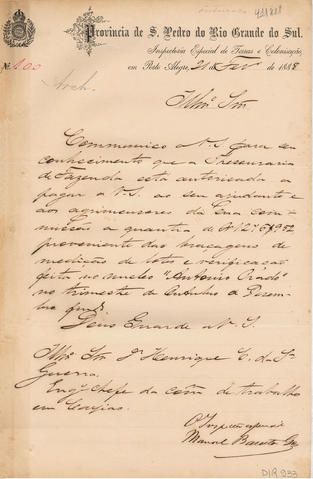 431888
Provincia de S. Pedro do Rio Grande do Sul.
Inspectoria Especial de Terras e Colonisação,
em Porto Alegre, 21 de Fevº de 1888
Nº 100
Arch.
Illmo Snr
Communico a V. S. para seu
conhecimento que a Thesouraria
de Fazenda está autorisada a
pagar a V. S. ao seu ajudante e
aos agrimensores da sua com-
missão a quantia de
proveniente das traçagens de
medição de lotes e verificação
feita no nucleo "Antonio Prado"
no trimestre de Outubro a Dezem-
bro
Deus Guarde a V. S.
Illmo Snr Dr Henrique C. da Sª
Guerra.
Engº Chefe da comª de trabalho
em Caxias.
O Inspector especial
Manoel Barata
DIR 933